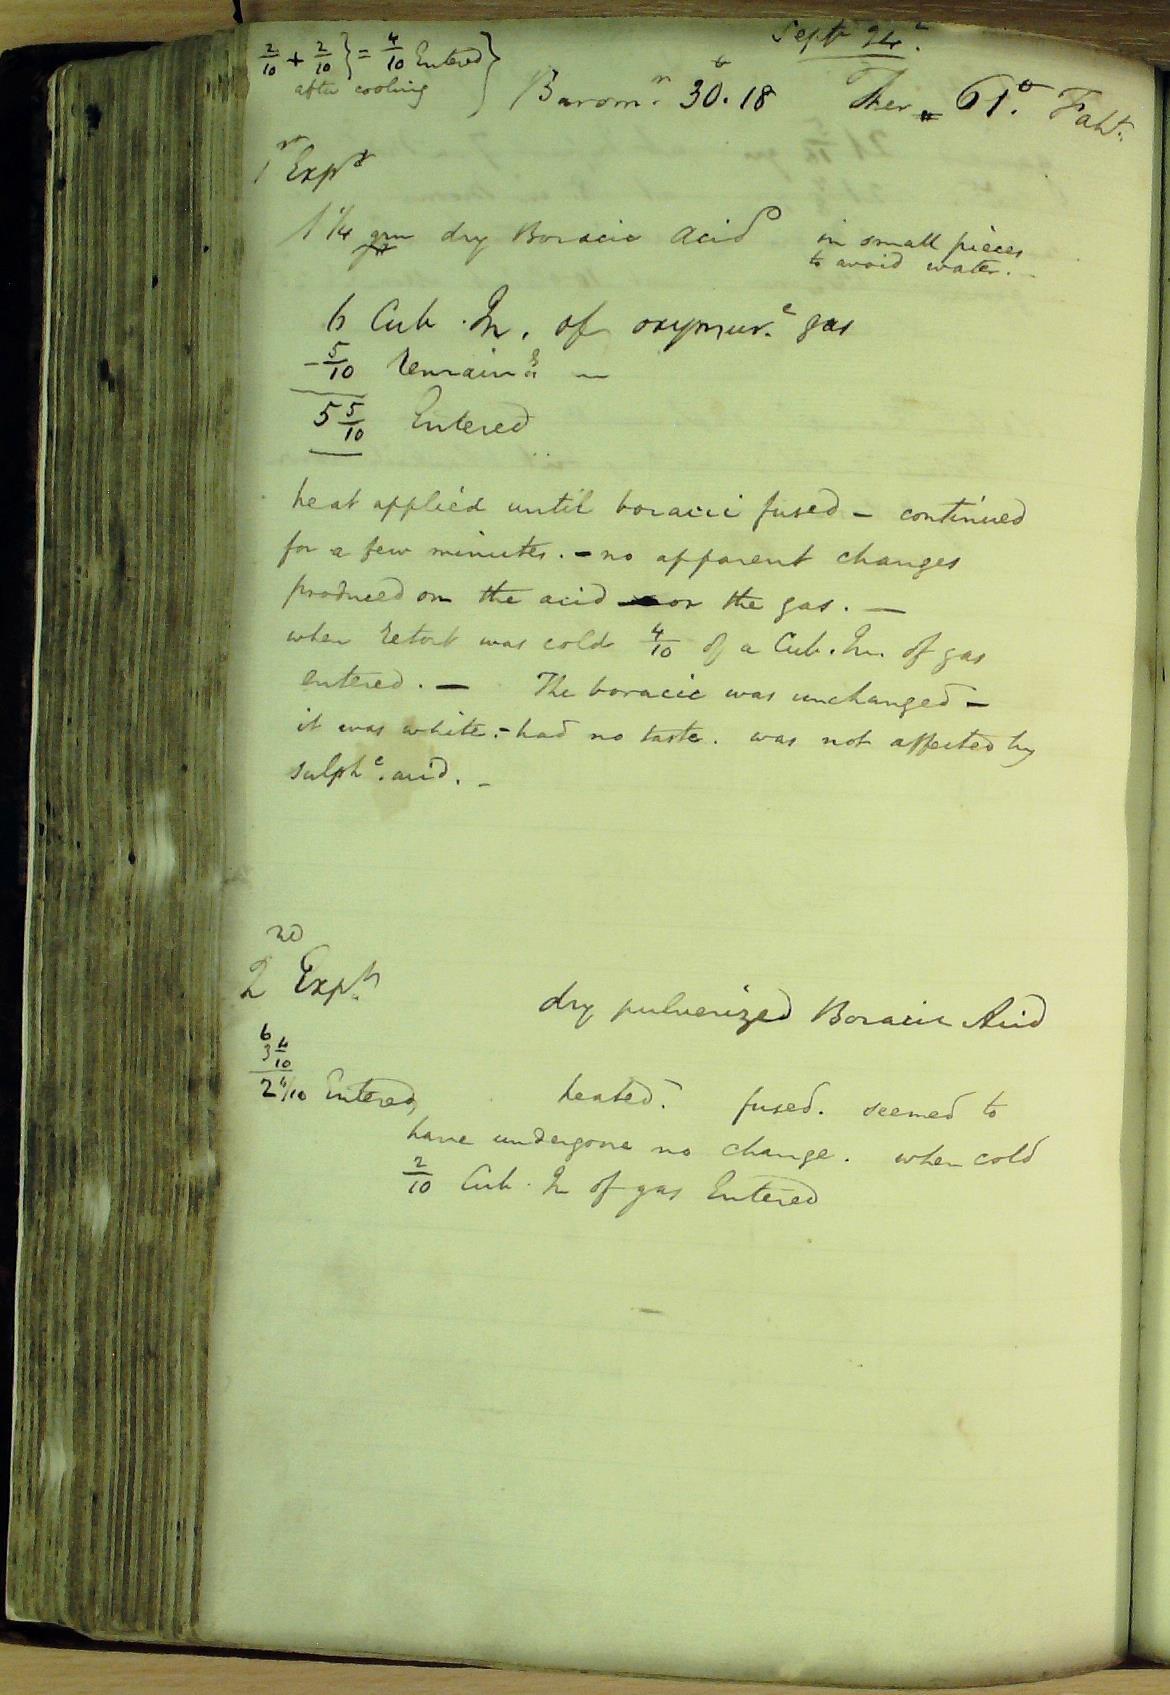 Septr 24th
2/10 + 2/10 } = 4/10 Entered }
after cooling
Baromr. 30.18 Ther 61° Faht.
1st Expt
1 1/4 grn dry Boracic Acid in small pieces
to avoid water. -
6 Cub. In. of oxymurc. gas
- 5/10 remaing —
5 5/10 Entered
heat applied until boracic fused - continued
for a few minutes. - no apparent changes
produced on the acid or the gas. —
when retort was cold 4/10 of a Cub. In. of gas
entered. — The boracic was unchanged -
it was white. - had no taste. was not affected by
sulphc. acid. -
2nd Expt.
dry pulverized Boracic Acid
6
3 4/10
2 6/10 Entered
heated. fused. seemed to
have undergone no change. when cold
2/10 Cub. In of gas Entered